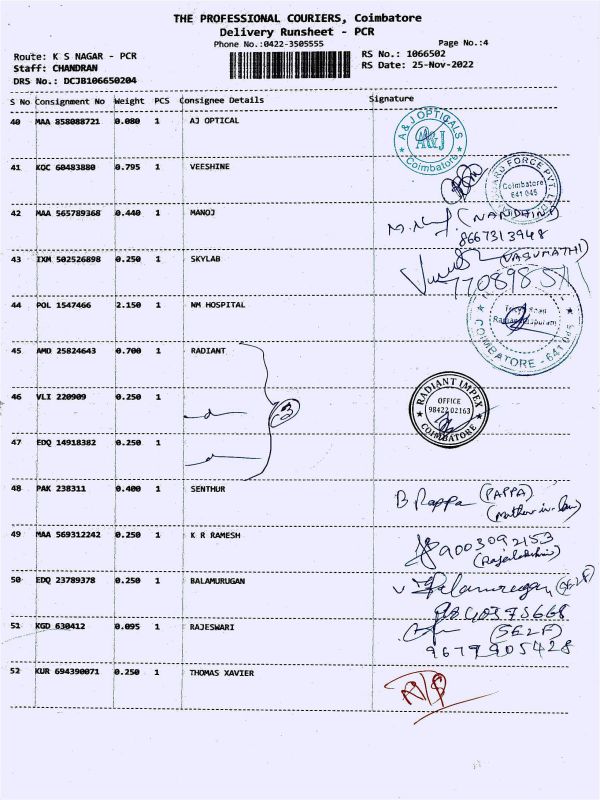 THE PROFESSIONAL COURIERS, Coimbatore
Delivery Runsheet - PCR
Phone No.:0422-3505555
Page No.:4
Route: K S NAGAR - PCR
RS No.: 1066502
Staff: CHANDRAN
RS Date: 25-Nov-2022
DRS No.: DCJB106650204
S No Consignment No Weight PCS Consignee Details Signature
40 MAA 858088721 0.080 1 AJ OPTICAL
A & J OPTICALS
A&J
Coimbatore
41 KOC 60483880 0.795 1 VEESHINE
FORCE PVT. LTD
Coimbatore
641 045
42 MAA 565789368 0.440 1 MANOJ
(NANDHINI)
8667313948
43 IXM 502526898 0.250 1 SKYLAB
(VASUMATHI)
44 POL 1547466 2.150 1 NM HOSPITAL
COIMBATORE - 641 045
45 AMD 25824643 0.700 1 RADIANT
46 VLI 220909 0.250 1
3
RADIANT IMPEX
OFFICE
98422 02163
COIMBATORE
47 EDQ 14918382 0.250 1
48 PAK 238311 0.400 1 SENTHUR
B Pappa (PAPPA)
(Mother-in-law)
49 MAA 569312242 0.250 1 K R RAMESH
9003092153
(Rajalakshmi)
50 EDQ 23789378 0.250 1 BALAMURUGAN
Balamurugan (SELF)
51 KGD 630412 0.095 1 RAJESWARI
(SELF)
9679905428
52 KUR 694390071 0.250 1 THOMAS XAVIER